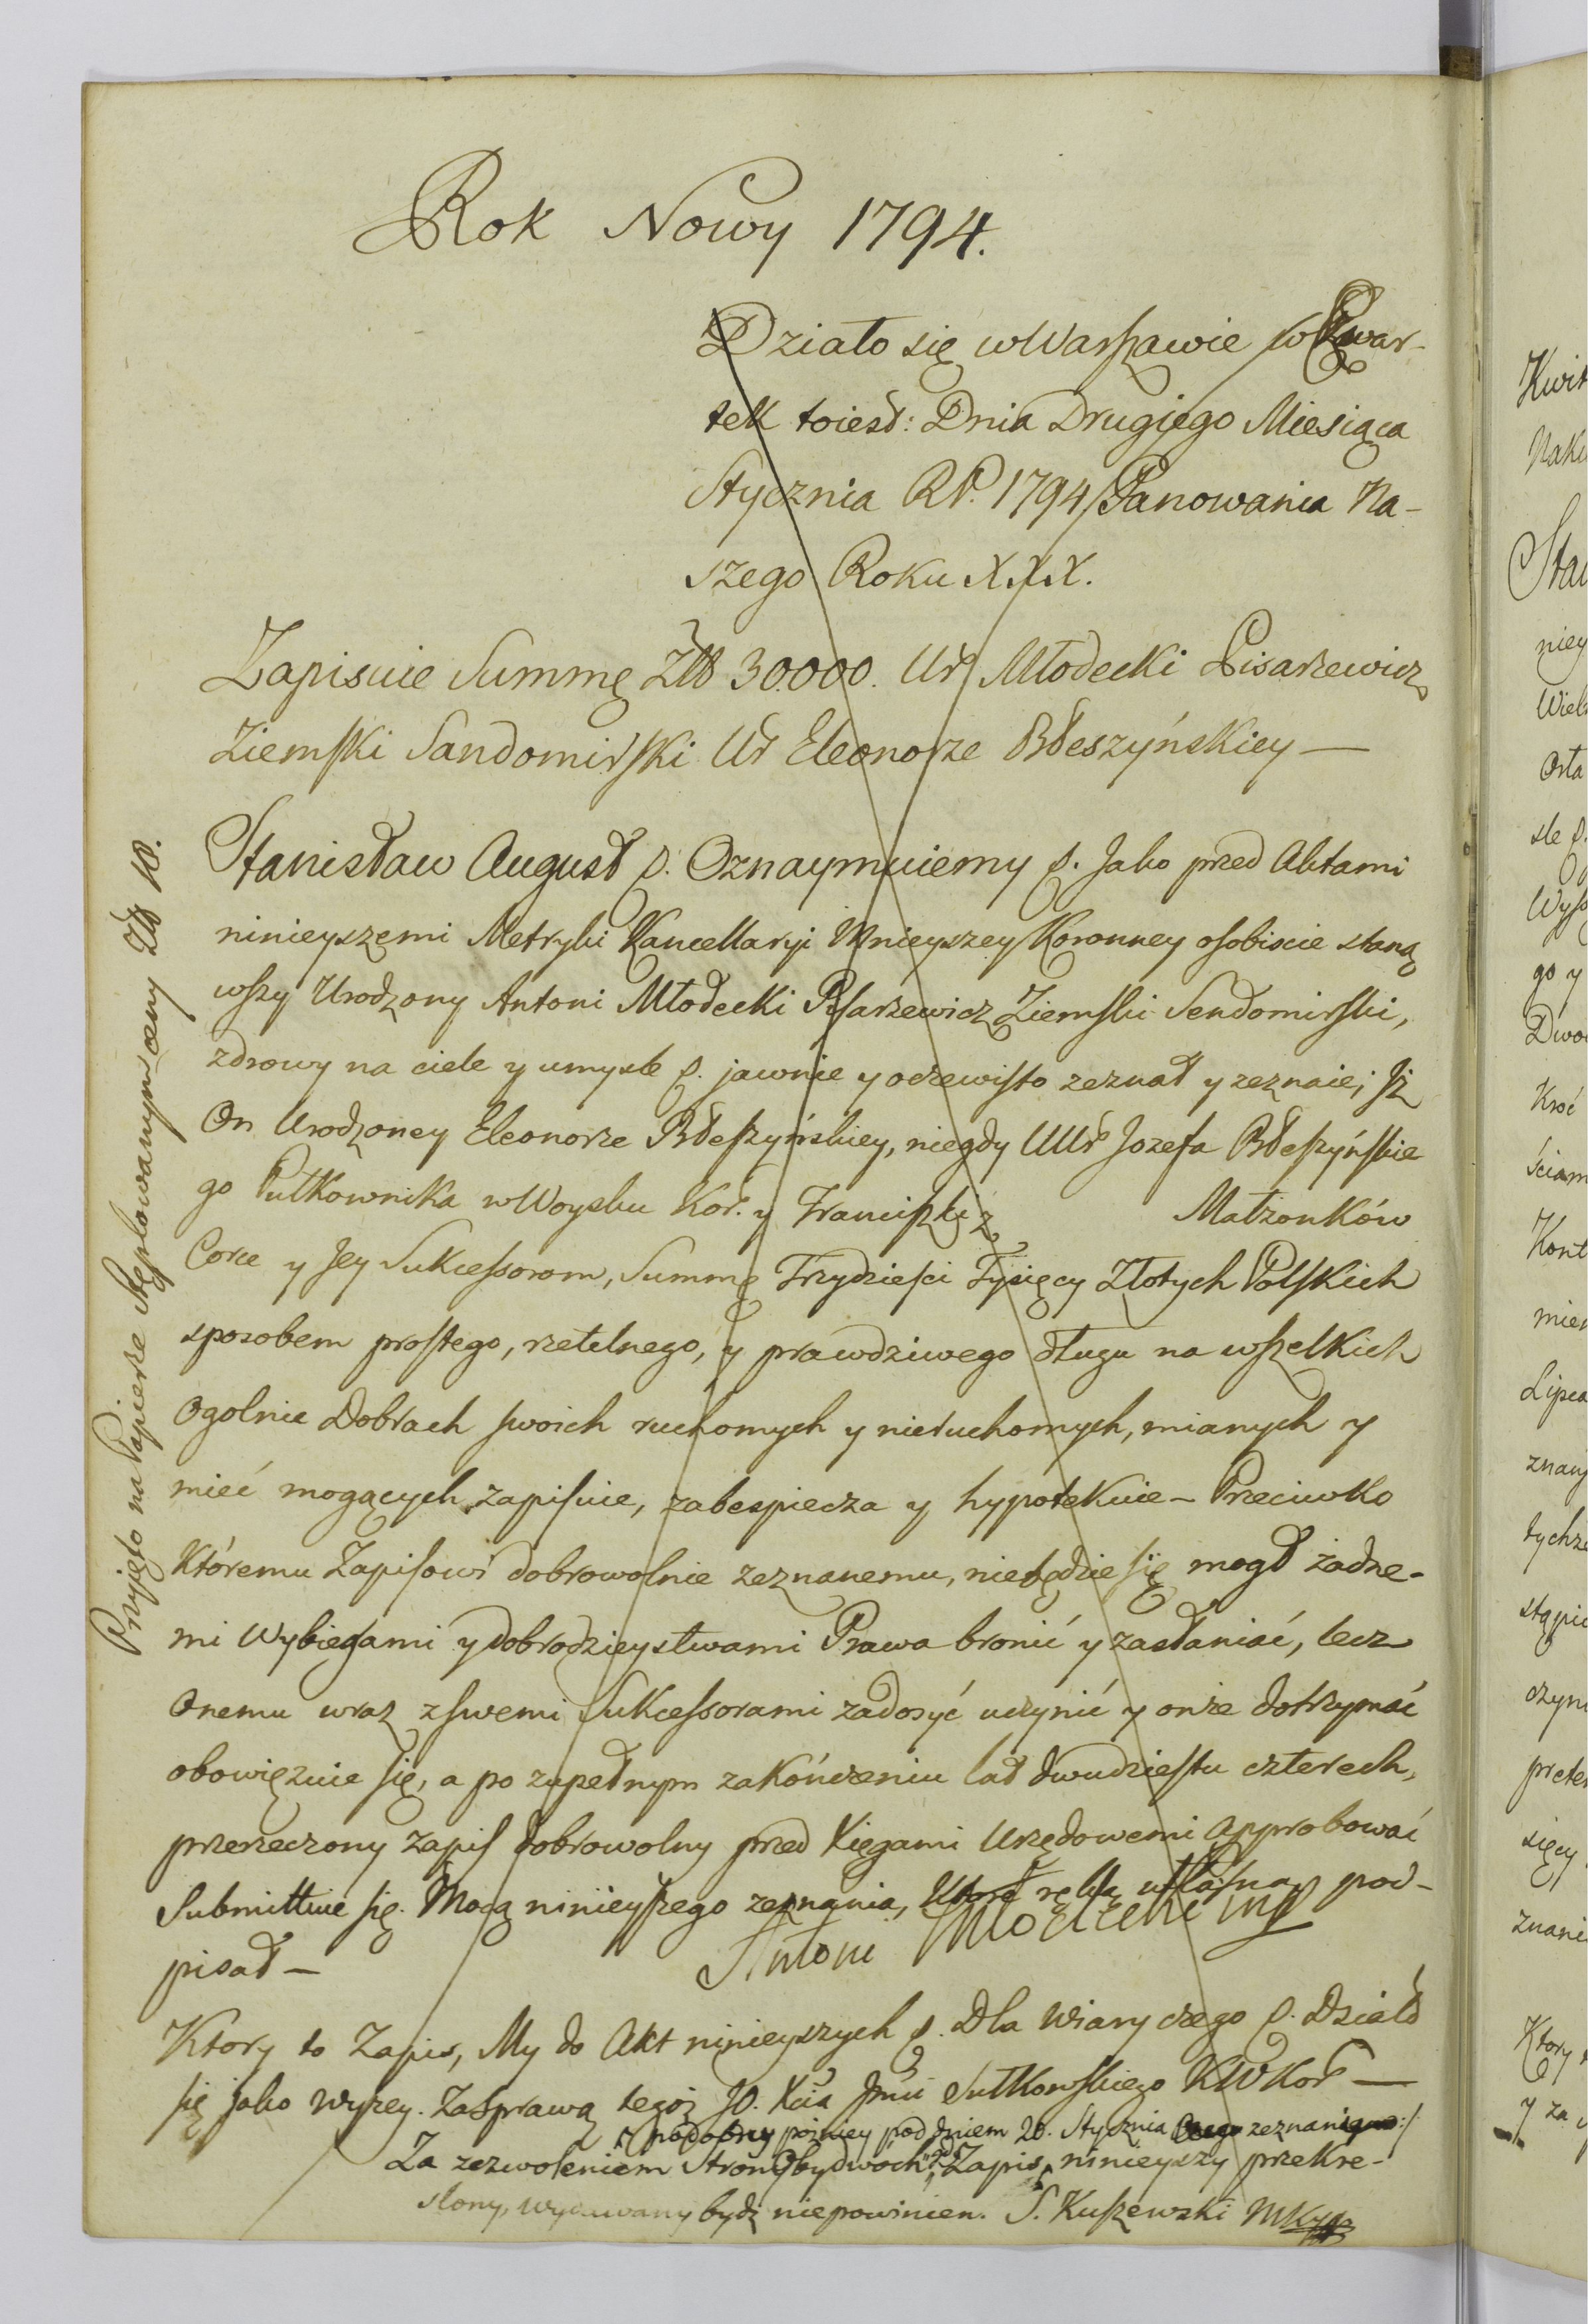 Rok Nowy 1794.
Działo się w Warszawie w Czwar-
tek toiest: Dnia Drugiego Miesiąca
Stycznia RP. 1794 Panowania Na-
szego Roku XXX.
Zapisuie Summę Złł 30.000. Ur Młodecki Pisarzewicz
Ziemski Sandomirski Ur Eleonorze Błeszyńskiey —
Stanisław August p. Oznaymuiemy p. Jako przed Aktami
ninieyszemi Metryki Kancellaryi Mnieyszey Koronney osobiscie staną
wszy Urodzony Antoni Młodecki Pisarzewicz Ziemski Sendomirski,
zdrowy na ciele y umysle p. jawnie y oczewisto zeznał y zeznaie; Jż
On Urodzoney Eleonorze Błeszyńskiey, niegdy UUr Jozefa Błeszyńskie
go Pułkownika w Woysku Kor. y Franciszki z Małżonków
Corce y Jey Sukcessorom, Summę Trzydziesci Tysięcy Złotych Polskich
sposobem prostego, rzetelnego, y prawdziwego długu na wszelkich
Ogolnie Dobrach swoich ruchomych y nieruchomych, mianych y
mieć mogących zapisuie, zabespiecza y hypotekuie – Przeciwko
Któremu Zapisowi dobrowolnie zeznanemu, niebędzie się mogł żadne-
mi Wybiegami y dobrodzieystwami Prawa bronić y zasłaniać, lecz
Onemu wraz z swemi Sukcessorami zadosyć uczynić y onże dotrzymać
obowięzuie się, a po zupełnym zakończeniu lat dwudziestu czterech,
przerzeczony Zapis dobrowolny przed Xięgami Urzędowemi Approbować
Submittuie się. Mocą ninieyszego zeznania, Które ręką własną pod-
pisał – Antoni Młodecki mp
Ktory to Zapis, My do Akt ninieyszych p. Dla Wiary czego p. Działo
się jako wyzey. Za Sprawą tegoż JO. Xcia Jmci Sułkowskiego KWKor —
y podobny pozniey pod dniem 20. Stycznia zeznany
Za zezwoleniem Stron Obydwóch, Zapis ninieyszy przekre-
slony, wydawany bydz niepowinien. S. Kuszewski MK
Przyięto na Papierze Stęplowanym ceny Złł 10.